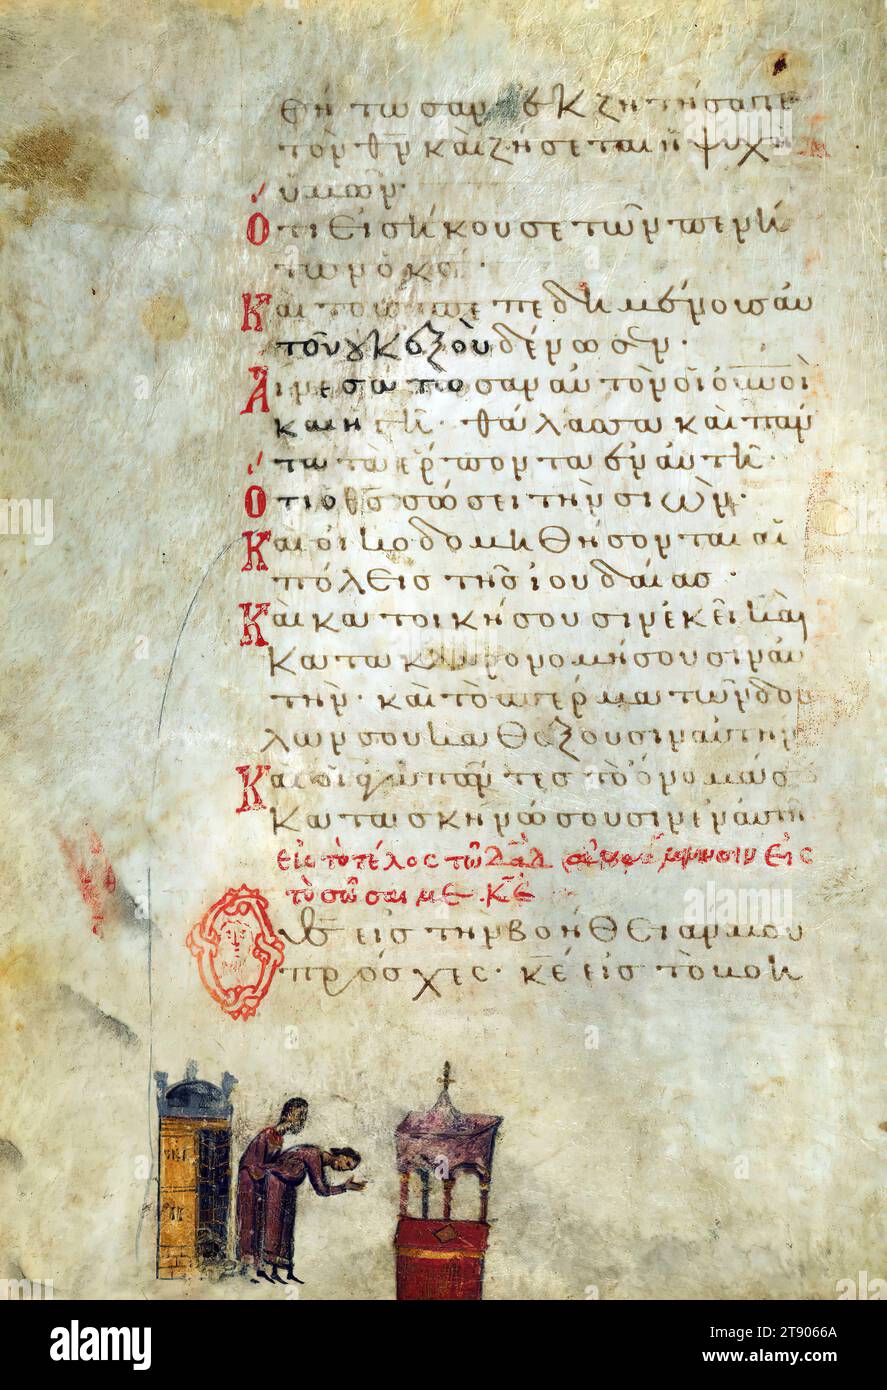 θήτωσαν ἐκζητήσατε
τὸν θν̅ καὶ ζήσεται ἡ ψυχὴ
ὑμῶν·
Ὅτι εἰσήκουσε τῶν πενή
των ὁ κς̅·
Καὶ τοὺς πεπεδημένους αὐ
τοῦ οὐκ ἐξουδένωσεν·
Αἰνεσάτωσαν αὐτὸν οἱ οὐν̅οὶ
καὶ ἡ γῆ· θάλασσα καὶ πάν
τα τὰ ἕρποντα ἐν αὐτῇ·
Ὅτι ὁ θς̅ σώσει τὴν σιών·
Καὶ οἰκοδομηθήσονται αἱ
πόλεις τῆς ἰουδαίας·
Καὶ κατοικήσουσιν ἐκεῖ καὶ
κατακληρονομήσουσιν αὐ
τήν· καὶ τὸ σπέρμα τῶν δού
λων σου καθέξουσιν αὐτήν
Καὶ οἱ ἀγαπῶντες τὸ ὄνομα
κατασκηνώσουσιν ἐν αὐτῇ
εἰς τὸ τέλος τῶ δαδ̅ εἰς
τὸ σῶσαι με κε̅
Ὁ θς̅ εἰς τὴν βοήθειάν μου
πρόσχες· κε̅ εἰς τὸ
alamy
Image ID: 2T9066A
www.alamy.com